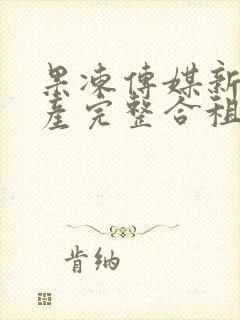 果凍傳媒新
產完整合租
肯納